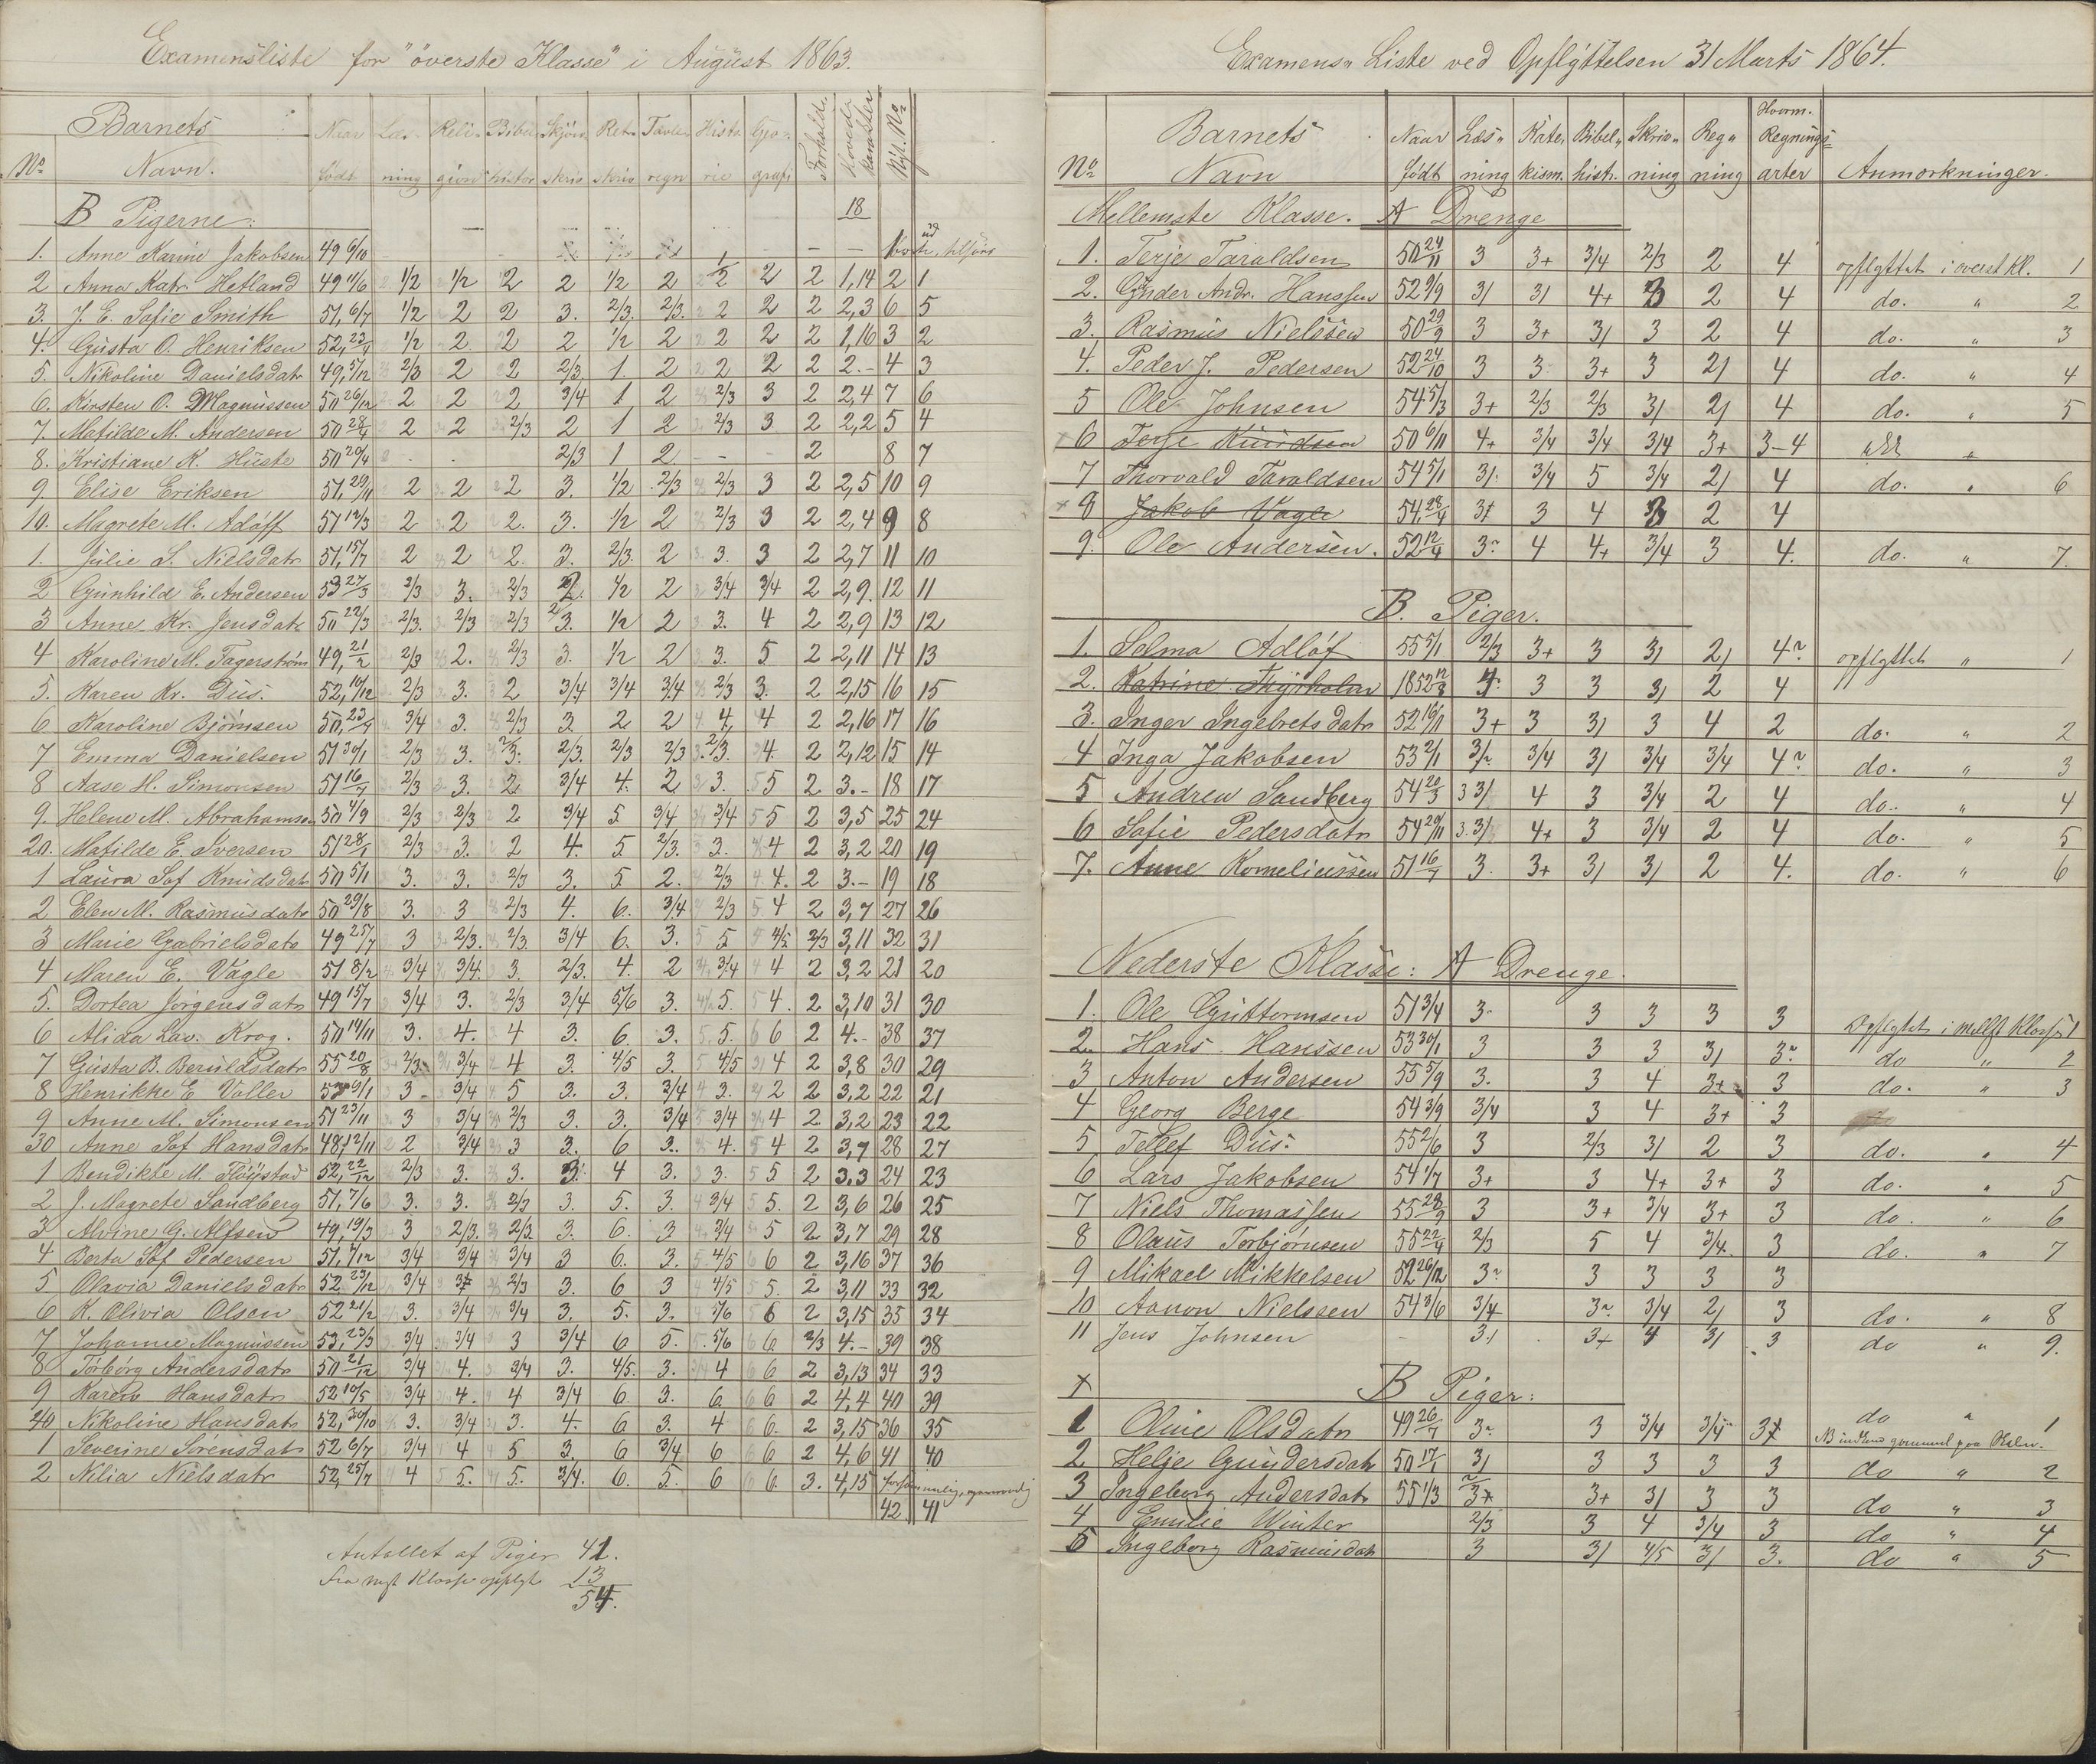 Examensliste for "överste Klasse" i August 1863.
No. Barnets Navn. Naar födt Læsning Religion Bibelhistor Skjönskriv Retskriv Tavleregn Historie Gjografi Forhold. Hovedkarakter Nyt. No.
B Pigerne: 18
1. Anne Karine Jakobsen 49 6/10 — —
2 Anna Katr. Hetland 49 11/6 1/2 1/2 2 2 1/2 2 1/2 2 2 1,14 2 1
3. J. E. Sofie Smith 51, 6/7 1/2 2 2 3. 2/3. 2/3. 2 2 2 2,3 6 5
4. Gusta O. Henriksen 52, 23/4 1/2 2 2 2 1/2 2 2 2 2 1,16 3 2
5. Nikoline Danielsdatr 49, 5/12 2/3 2 2 2/3 1 2 2 2 2 2.- 4 3
6. Kirsten O. Magnussen 50 26/12 2 2 2 3/4 1 2 2/3 3 2 2,4 7 6
7. Matilde M. Andersen 50 28/4 2 2 2/3 2 1 2 2/3 3 2 2,2 5 4
8. Kristiane K. Huste 50 20/4 - - 2/3 1 2 - - 2 8 7
9. Elise Eriksen 51, 29/11 2 2 2 3. 1/2 2/3 2/3 3 2 2,5 10 9
10. Magrete M. Adólf 51 12/3 2 2 2. 3. 1/2 2 2/3 3 2 2,4 9 8
1. Julie S. Nielsdatr 51, 15/7 2 2 2. 3. 2/3. 2 3. 3 2 2,7 11 10
2 Gunhild E. Andersen 53 27/3 2/3 3. 2/3 2 1/2 2 3/4 3/4 2 2,9. 12 11
3 Anne Kr. Jensdatr 50 22/3 2/3. 2/3 2/3 3. 1/2 2 3. 4 2 2,9 13 12
4 Karoline M. Fagerström 49, 21/2 2/3 2. 2/3 3. 1/2 2 3. 5 2 2,11 14 13
5. Karen Kr. Dus. 52, 10/12 2/3 3. 2 3/4 3/4 3/4 2/3 3. 2 2,15 16 15
6 Karoline Björnsen 50, 23/4 3/4 3. 2/3 3 2 2 4, 4 2 2,16 17 16
7 Emma Danielsen 51 30/1 2/3 3. 2/3. 2/3. 2/3 2/3 2/3. 4. 2 2,12 15 14
8 Aase H. Simonsen 51 16/7 2/3 3. 2 3/4 4. 2 3. 5 2 3.- 18 17
9. Helene M. Abrahamsen 50 4/9 2/3 2/3 2 3/4 5 3/4 3/4 5 2 3,5 25 24
20. Matilde E. Iversen 51 28/1 2/3 3. 2 4. 5. 2/3. 3. 4 2 3,2 20 19
1 Laura Sof Knudsdatr 50 5/1 3. 3. 2/3 3. 5 2. 2/3 4. 2 3.- 19 18
2 Elen M. Rasmusdatr 50 29/8 3. 3 2/3 4. 6. 3/4 2/3 4 2 3,7 27 26
3 Marie Gabrielsdatr 49 25/7 3 2/3. 2/3 3/4 6. 3. 5 4/5 2/3 3,11 32 31
4 Maren E. Vagle 51 8/2 3/4 3/4. 3. 2/3. 4. 2 3/4 4 2 3,2 21 20
5. Dortea Jörgensdatr 49 15/7 3/4 3. 2/3 3/4 5/6 3. 5. 4. 2 3,10 31 30
6 Alida Lav. Krog. 50 14/11 3. 4. 4 3. 6 3. 5. 6 2 4.- 38 37
7 Gusta B. Beruldsdatr 55 20/8 2/3. 3/4 4 3. 4/5 3. 4/5 4 2 3,8 30 29
8 Henrikke E Voller 9/1 3 3/4 5 3. 3. 3/4 3. 2 2 3,2 22 21
9 Anne M. Simonsen 51 23/11 3 3/4 2/3 3. 3. 3/4 3/4 4 2 3,2 23 22
30 Anne Sof Hansdatr 48, 12/11 2 3/4 3 3. 6 3. 4. 4 2 3,7 28 27
1 Bendikte M. Höystad 52, 22/12 2/3 3. 3. 3. 4 3. 3. 5 2 3,3 24 23
2 J. Magrete Sandberg 51, 7/6 3. 3. 2/3 3. 5. 3. 3/4 5. 2 3,6 26 25
3 Alvine G. Alfsen 49, 19/3 3 2/3. 2/3. 3. 6. 3 3/4 5 2 3,7 29 28
4 Berta Sof Pedersen 51, 7/12 3/4 3/4 3/4 3 6. 3. 4/5 6 2 3,16 37 36
5 Olavia Danielsdatr 52, 23/12 3/4 2/3 3. 6 3 4/5 5. 2 3,11 33 32
6 K. Olivia Olsen 52 21/2 3. 3/4 3/4 3. 5. 3. 5/6 6 2 3,15 35 34
7 Johanne Magnussen 53, 23/3 3/4 3/4 3 3/4 6 5. 5/6 6 2/3 4.- 39 38
8 Torborg Andersdatr 50 21/12 3/4 4. 3/4 3. 4/5. 3. 4 6 2 3,13 34 33
9 Karen Hansdatr 52 10/5 3/4 4. 4 3/4 6 3. 6 6 2 4,4 40 39
40 Nikoline Hansdatr 52, 30/10 3. 3/4 3. 4. 6 3. 4 6. 2 3,15 36 35
1 Severine Sörensdatr 52 6/7 3/4 4 5 3. 6 3/4 6 6 2 4,6 41 40
2 Nilia Nielsdatr 52, 25/7 4 5. 5. 3/4. 6. 5. 6 6. 3. 4,15
42. 41
Antallet af Piger 41.
fra nest Klasse opflyt 13
54.
Examens" Liste ved Opflýttelsen 31 Marts 1864.
No Barnets Navn Naar födt Læs"ning Kate"kism. Bibel"histr. Skriv"ning Reg"ning Hvorm. Regningsarter Anmærkninger.
Mellemste Klasse. A Drenge
1. Terje Taraldsen 50 24/11 3 3+ 3/4 2/3 2 4 opflyttet i överst kl. 1
2. Gunder Andr. Hanssen 52 9/9 3/ 3/ 4+ 3 2 4 do. " 2
3. Rasmus Nielssen 50 29/9 3 3+ 3/ 3 2 4 do. " 3
4. Peder J. Pedersen 52 24/10 3 3 3+ 3 2/ 4 do. " 4
5 Ole Johnsen 54 5/3 3+ 2/3 2/3 3/ 2/ 4 do. " 5
6 Terje Knudsen 50 6/11 4+ 3/4 3/4 3/4 3+ 3-4
7 Thorvald Taraldsen 54 5/1 3/. 3/4 5 3/4 2/ 4 do. " 6
× 8 Jakob Vagle 54, 28/4 3+ 3 4 3 2 4
9. Ole Andersen. 52 12/4 3~ 4 4+ 3/4 3 4. do. " 7.
B. Piger.
1. Selma Adlóf 55 5/1 2/3 3+ 3 3/ 2/ 4~ opflyttet " 1
2. Katrine Thyrholm 1852 12/8 4 3 3 3/ 2 4
3. Inger Ingebretsdatr 52 16/11 3+ 3 3/ 3 4 2 do. " 2
4 Inga Jakobsen 53 2/1 3/~ 3/4 3/ 3/4 3/4 4~ do. " 3
5 Andrea Sandberg 54 20/3 3 3/ 4 3 3/4 2 4 do. " 4
6 Sofie Pedersdatr 54 20/11 3. 3/ 4+ 3 3/4 2 4 do. " 5
7. Anne Korneliussen 51 16/7 3. 3+ 3/ 3/ 2 4. do. " 6
Nederste Klasse: A Drenge.
1. Ole Guttormsen 51 3/4 3. 3 3 3 3 Opflytet i mellst Klasse 1
2. Hans Hanssen 53 30/1 3 3 3 3/ 3~ do " 2
3 Anton Andersen 55 5/9 3. 3 4 3+ 3 do. " 3
4 Georg Berge 54 3/9 3/4 3 4 3+ 3
5 Tellef Dus. 55 2/6 3 2/3 3/ 2 3 do. " 4
6 Lars Jakobsen 54 1/7 3+ 3 4+ 3+ 3 do. " 5
7 Niels Thomassen 55 28/9 3 3+ 3/4 3+ 3 do. " 6
8 Olaus Torbjörnsen 55 22/4 2/3 5 4 3/4. 3 do. " 7
9 Mikael Mikkelsen 52 26/12 3~ 3 3 3 3
10 Aanon Nielssen 54 3/6 3/4 3~ 3/4 2/ 3 do. " 8
11 Jens Johnsen - 3/ 3+ 4 3/ 3 do " 9.
× B Piger:
1 Oline Olsdatr 49 26/7 3~ 3 3/4 3/4 3+ do " 1
2 Helje Gundersdatr 50 17/1 3/ 3 3 3 3 do " 2
3 Ingeborg Andersdatr 55 1/3 3+ 3+ 3/ 3 3 do " 3
4 Emilie Winter 2/3 3 4 3/4 3 do " 4
5 Ingeborg Rasmusdatr 3 3/ 4/5 3/ 3. do " 5